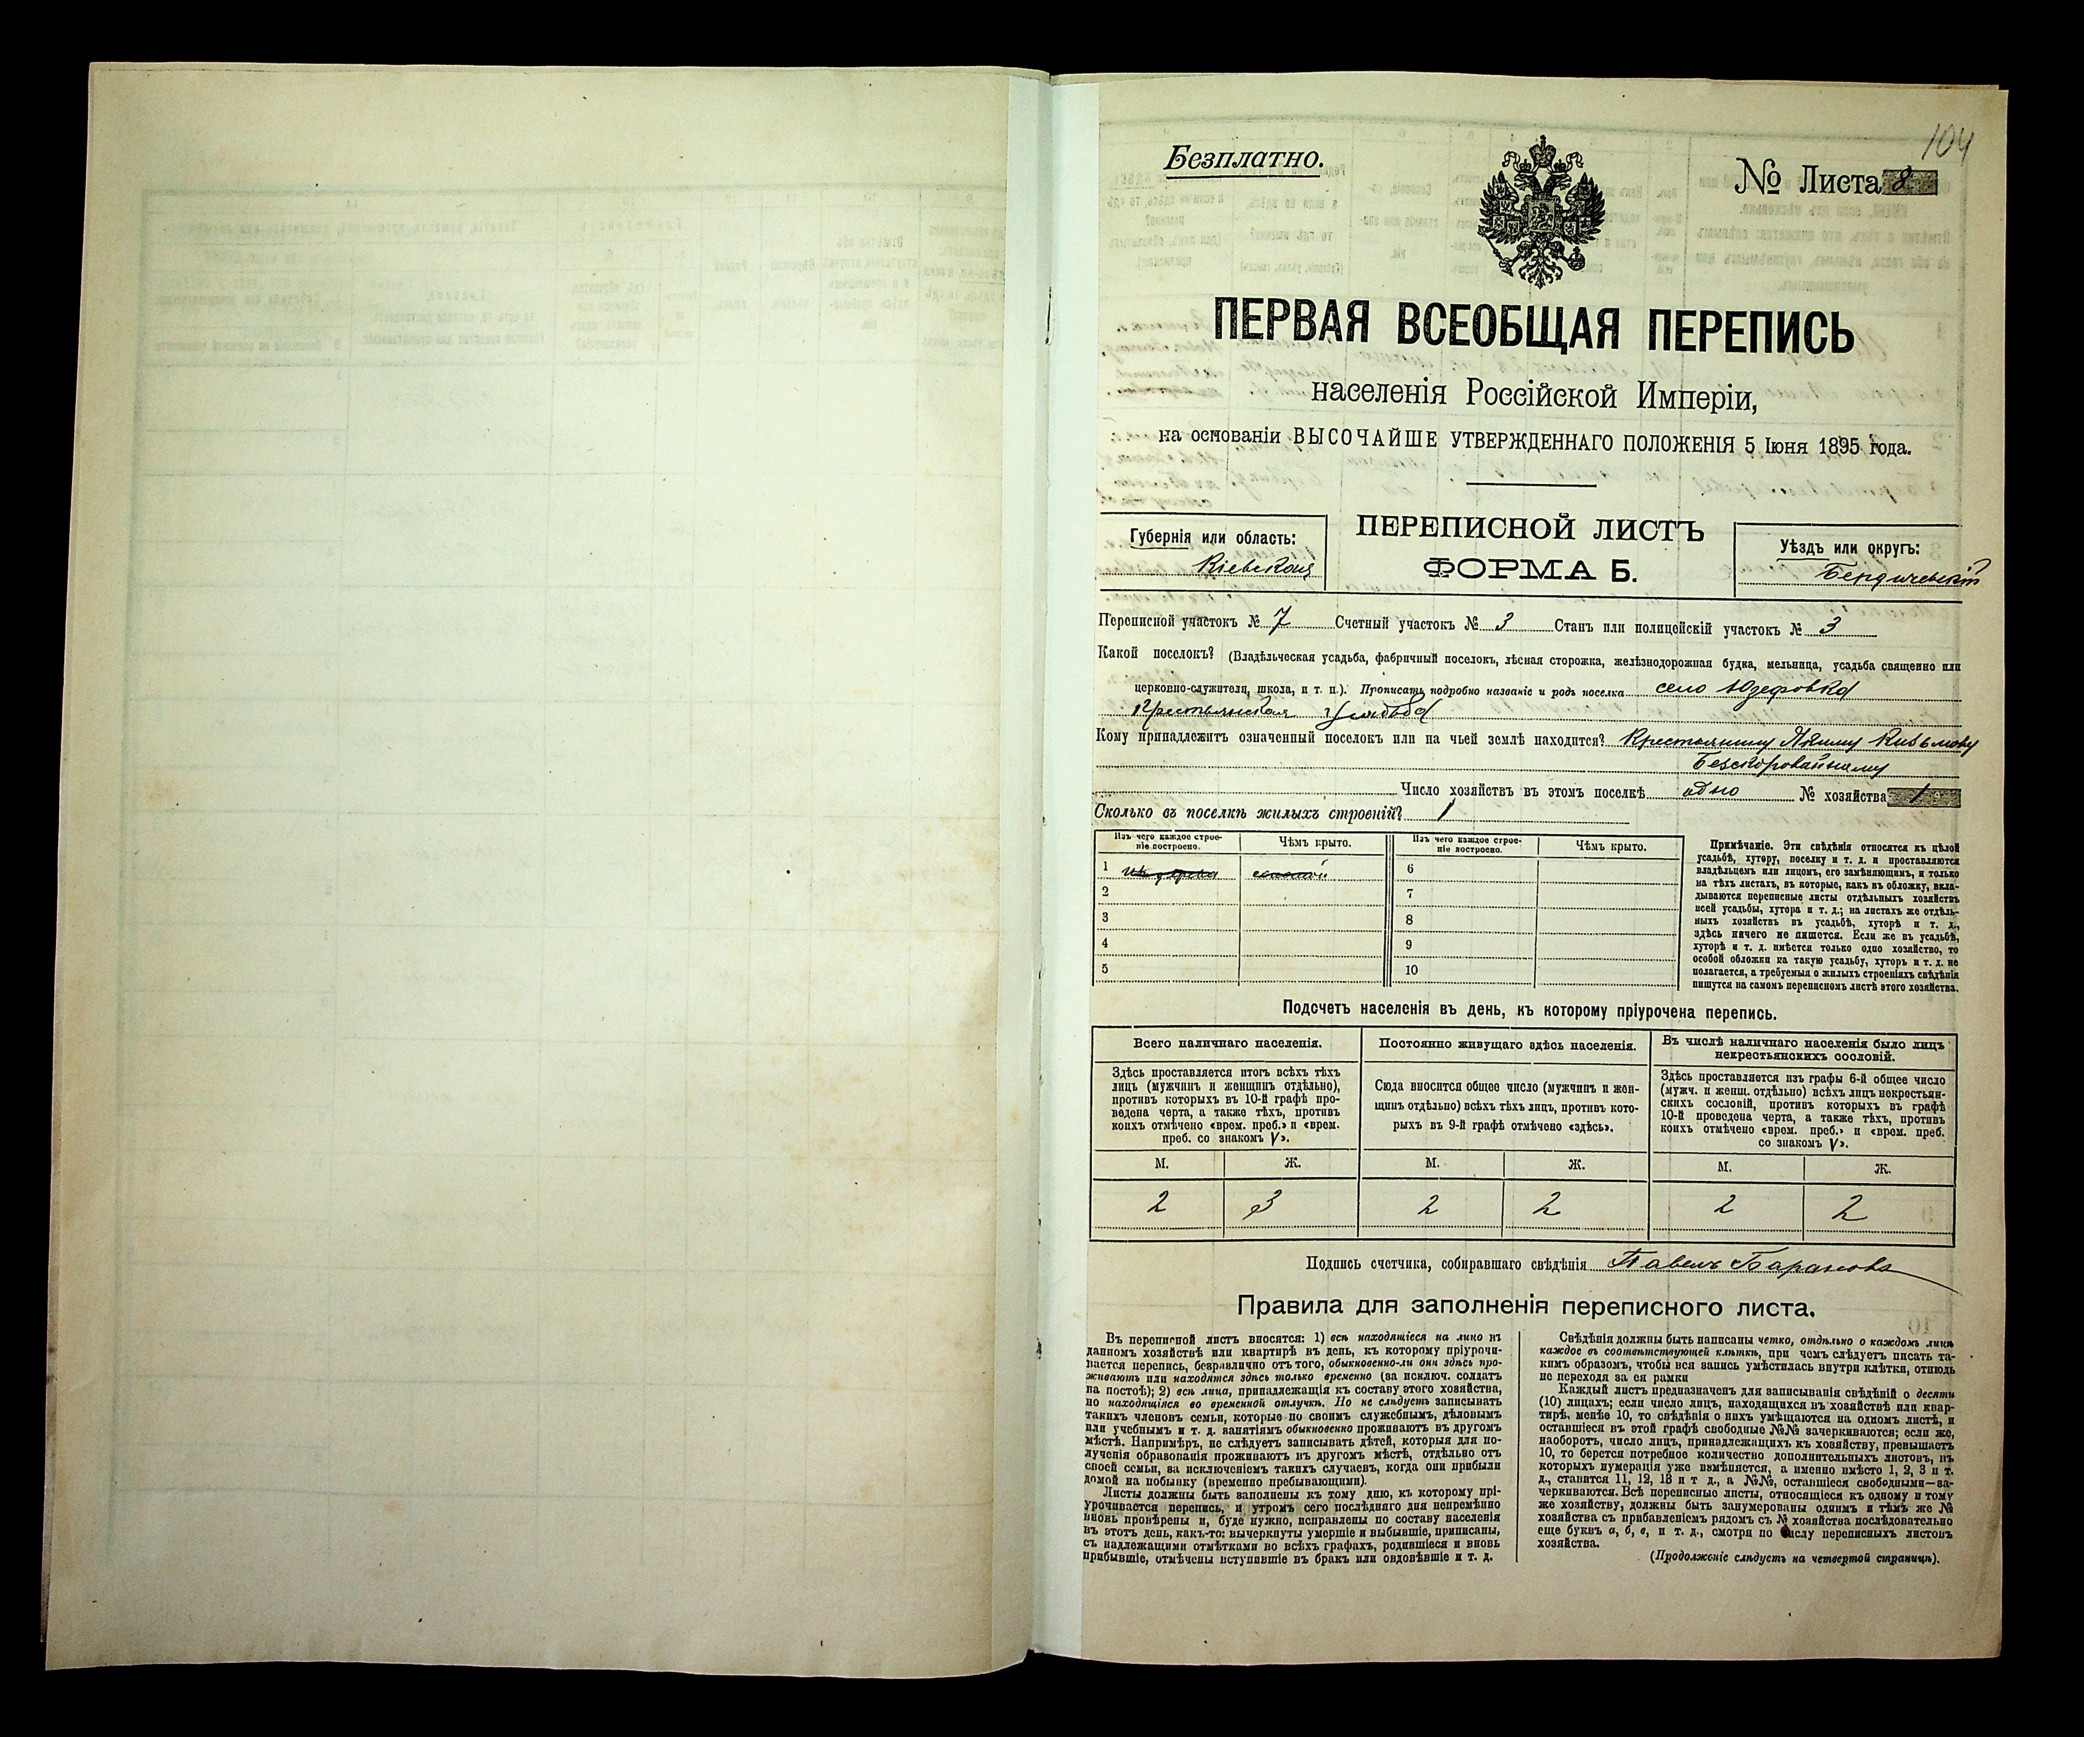 104
Безплатно.
№ Листа 8
ПЕРВАЯ ВСЕОБЩАЯ ПЕРЕПИСЬ
населенія Россійской Имперіи,
на основаніи ВЫСОЧАЙШЕ УТВЕРЖДЕННАГО ПОЛОЖЕНІЯ 5 Іюня 1895 года.
Губернія или область:
Кіевская
ПЕРЕПИСНОЙ ЛИСТЪ
ФОРМА Б.
Уѣздъ или округъ:
Бердичевскій
Переписной участокъ № 7 Счетный участокъ № 3 Станъ или полицейскій участокъ № 3
Какой поселокъ? (Владѣльческая усадьба, фабричный поселокъ, лѣсная сторожка, желѣзнодорожная будка, мельница, усадьба священно или
церковно-служителя, школа, и т. п.). Прописать подробно названіе и родъ поселка село Юзефовка
крестьянская усадьба
Кому принадлежитъ означенный поселокъ или на чьей землѣ находится? Крестьянину Якиму Кизьмову
Безкоровайному
Число хозяйствъ въ этомъ поселкѣ одно № хозяйства 1
Сколько въ поселкѣ жилыхъ строеній? 1
Изъ чего каждое строеніе построено. Чѣмъ крыто. Изъ чего каждое строеніе построено. Чѣмъ крыто.
1 изъ дерева соломой 6
2 7
3 8
4 9
5 10
Примѣчаніе. Эти свѣдѣнія относятся къ цѣлой
усадьбѣ, хутору, поселку и т. д. и проставляются
владѣльцемъ или лицомъ, его замѣняющимъ, и только
на тѣхъ листахъ, въ которые, какъ въ обложку, вкла-
дываются переписные листы отдѣльныхъ хозяйствъ
всей усадьбы, хутора и т. д.; на листахъ же отдѣль-
ныхъ хозяйствъ въ усадьбѣ, хуторѣ и т. д.,
здѣсь ничего не пишется. Если же въ усадьбѣ,
хуторѣ и т. д. имѣется только одно хозяйство, то
особой обложки на такую усадьбу, хуторъ и т. д. не
полагается, а требуемыя о жилыхъ строеніяхъ свѣдѣнія
пишутся на самомъ переписномъ листѣ этого хозяйства.
Подсчетъ населенія въ день, къ которому пріурочена перепись.
Всего наличнаго населенія.
Здѣсь проставляется итогъ всѣхъ тѣхъ
лицъ (мужчинъ и женщинъ отдѣльно),
противъ которыхъ въ 10-й графѣ про-
ведена черта, а также тѣхъ, противъ
коихъ отмѣчено «врем. преб.» и «врем.
преб. со знакомъ V».
Постоянно живущаго здѣсь населенія.
Сюда вносится общее число (мужчинъ и жен-
щинъ отдѣльно) всѣхъ тѣхъ лицъ, противъ кото-
рыхъ въ 9-й графѣ отмѣчено «здѣсь».
Въ числѣ наличнаго населенія было лицъ
некрестьянскихъ сословій.
Здѣсь проставляется изъ графы 6-й общее число
(мужч. и женщ. отдѣльно) всѣхъ лицъ некрестьян-
скихъ сословій, противъ которыхъ въ графѣ
10-й проведена черта, а также тѣхъ, противъ
коихъ отмѣчено «врем. преб.» и «врем. преб.
со знакомъ V».
М. Ж. М. Ж. М. Ж.
2 3 2 2 2 2
Подпись счетчика, собиравшаго свѣдѣнія Павелъ Барановъ
Правила для заполненія переписного листа.
Въ переписной листъ вносятся: 1) всѣ находящіеся на лицо въ
данномъ хозяйствѣ или квартирѣ въ день, къ которому пріурочи-
вается перепись, безразлично отъ того, обыкновенно-ли они здѣсь про-
живаютъ или находятся здѣсь только временно (за исключ. солдатъ
на постоѣ); 2) всѣ лица, принадлежащія къ составу этого хозяйства,
но находящіяся во временной отлучкѣ. Но не слѣдуетъ записывать
такихъ членовъ семьи, которые по своимъ служебнымъ, дѣловымъ
или учебнымъ и т. д. занятіямъ обыкновенно проживаютъ въ другомъ
мѣстѣ. Напримѣръ, не слѣдуетъ записывать дѣтей, которыя для по-
лученія образованія проживаютъ въ другомъ мѣстѣ, отдѣльно отъ
своей семьи, за исключеніемъ такихъ случаевъ, когда они прибыли
домой на побывку (временно пребывающими).
Листы должны быть заполнены къ тому дню, къ которому прі-
урочивается перепись, и утромъ сего послѣдняго дня непремѣнно
вновь провѣрены и, буде нужно, исправлены по составу населенія
въ этотъ день, какъ-то: вычеркнуты умершіе и выбывшіе, приписаны,
съ надлежащими отмѣтками во всѣхъ графахъ, родившіеся и вновь
прибывшіе, отмѣчены вступившіе въ бракъ или овдовѣвшіе и т. д.
Свѣдѣнія должны быть написаны четко, отдѣльно о каждомъ лицѣ
каждое въ соотвѣтствующей клѣткѣ, при чемъ слѣдуетъ писать та-
кимъ образомъ, чтобы вся запись умѣстилась внутри клѣтки, отнюдь
не переходя за ея рамки
Каждый листъ предназначенъ для записыванія свѣдѣній о десяти
(10) лицахъ; если число лицъ, находящихся въ хозяйствѣ или квар-
тирѣ, менѣе 10, то свѣдѣнія о нихъ умѣщаются на одномъ листѣ, и
оставшіеся въ этой графѣ свободные №№ зачеркиваются; если же,
наоборотъ, число лицъ, принадлежащихъ къ хозяйству, превышаетъ
10, то берется потребное количество дополнительныхъ листовъ, въ
которыхъ нумерація уже измѣняется, а именно вмѣсто 1, 2, 3 и т.
д., ставится 11, 12, 13 и т д., а №№, оставшіеся свободными—за-
черкиваются. Всѣ переписные листы, относящіеся къ одному и тому
же хозяйству, должны быть занумерованы однимъ и тѣмъ же №
хозяйства съ прибавленіемъ рядомъ съ № хозяйства послѣдовательно
еще буквъ а, б, в, и т. д., смотря по числу переписныхъ листовъ
хозяйства.
(Продолженіе слѣдуетъ на четвертой страницѣ).